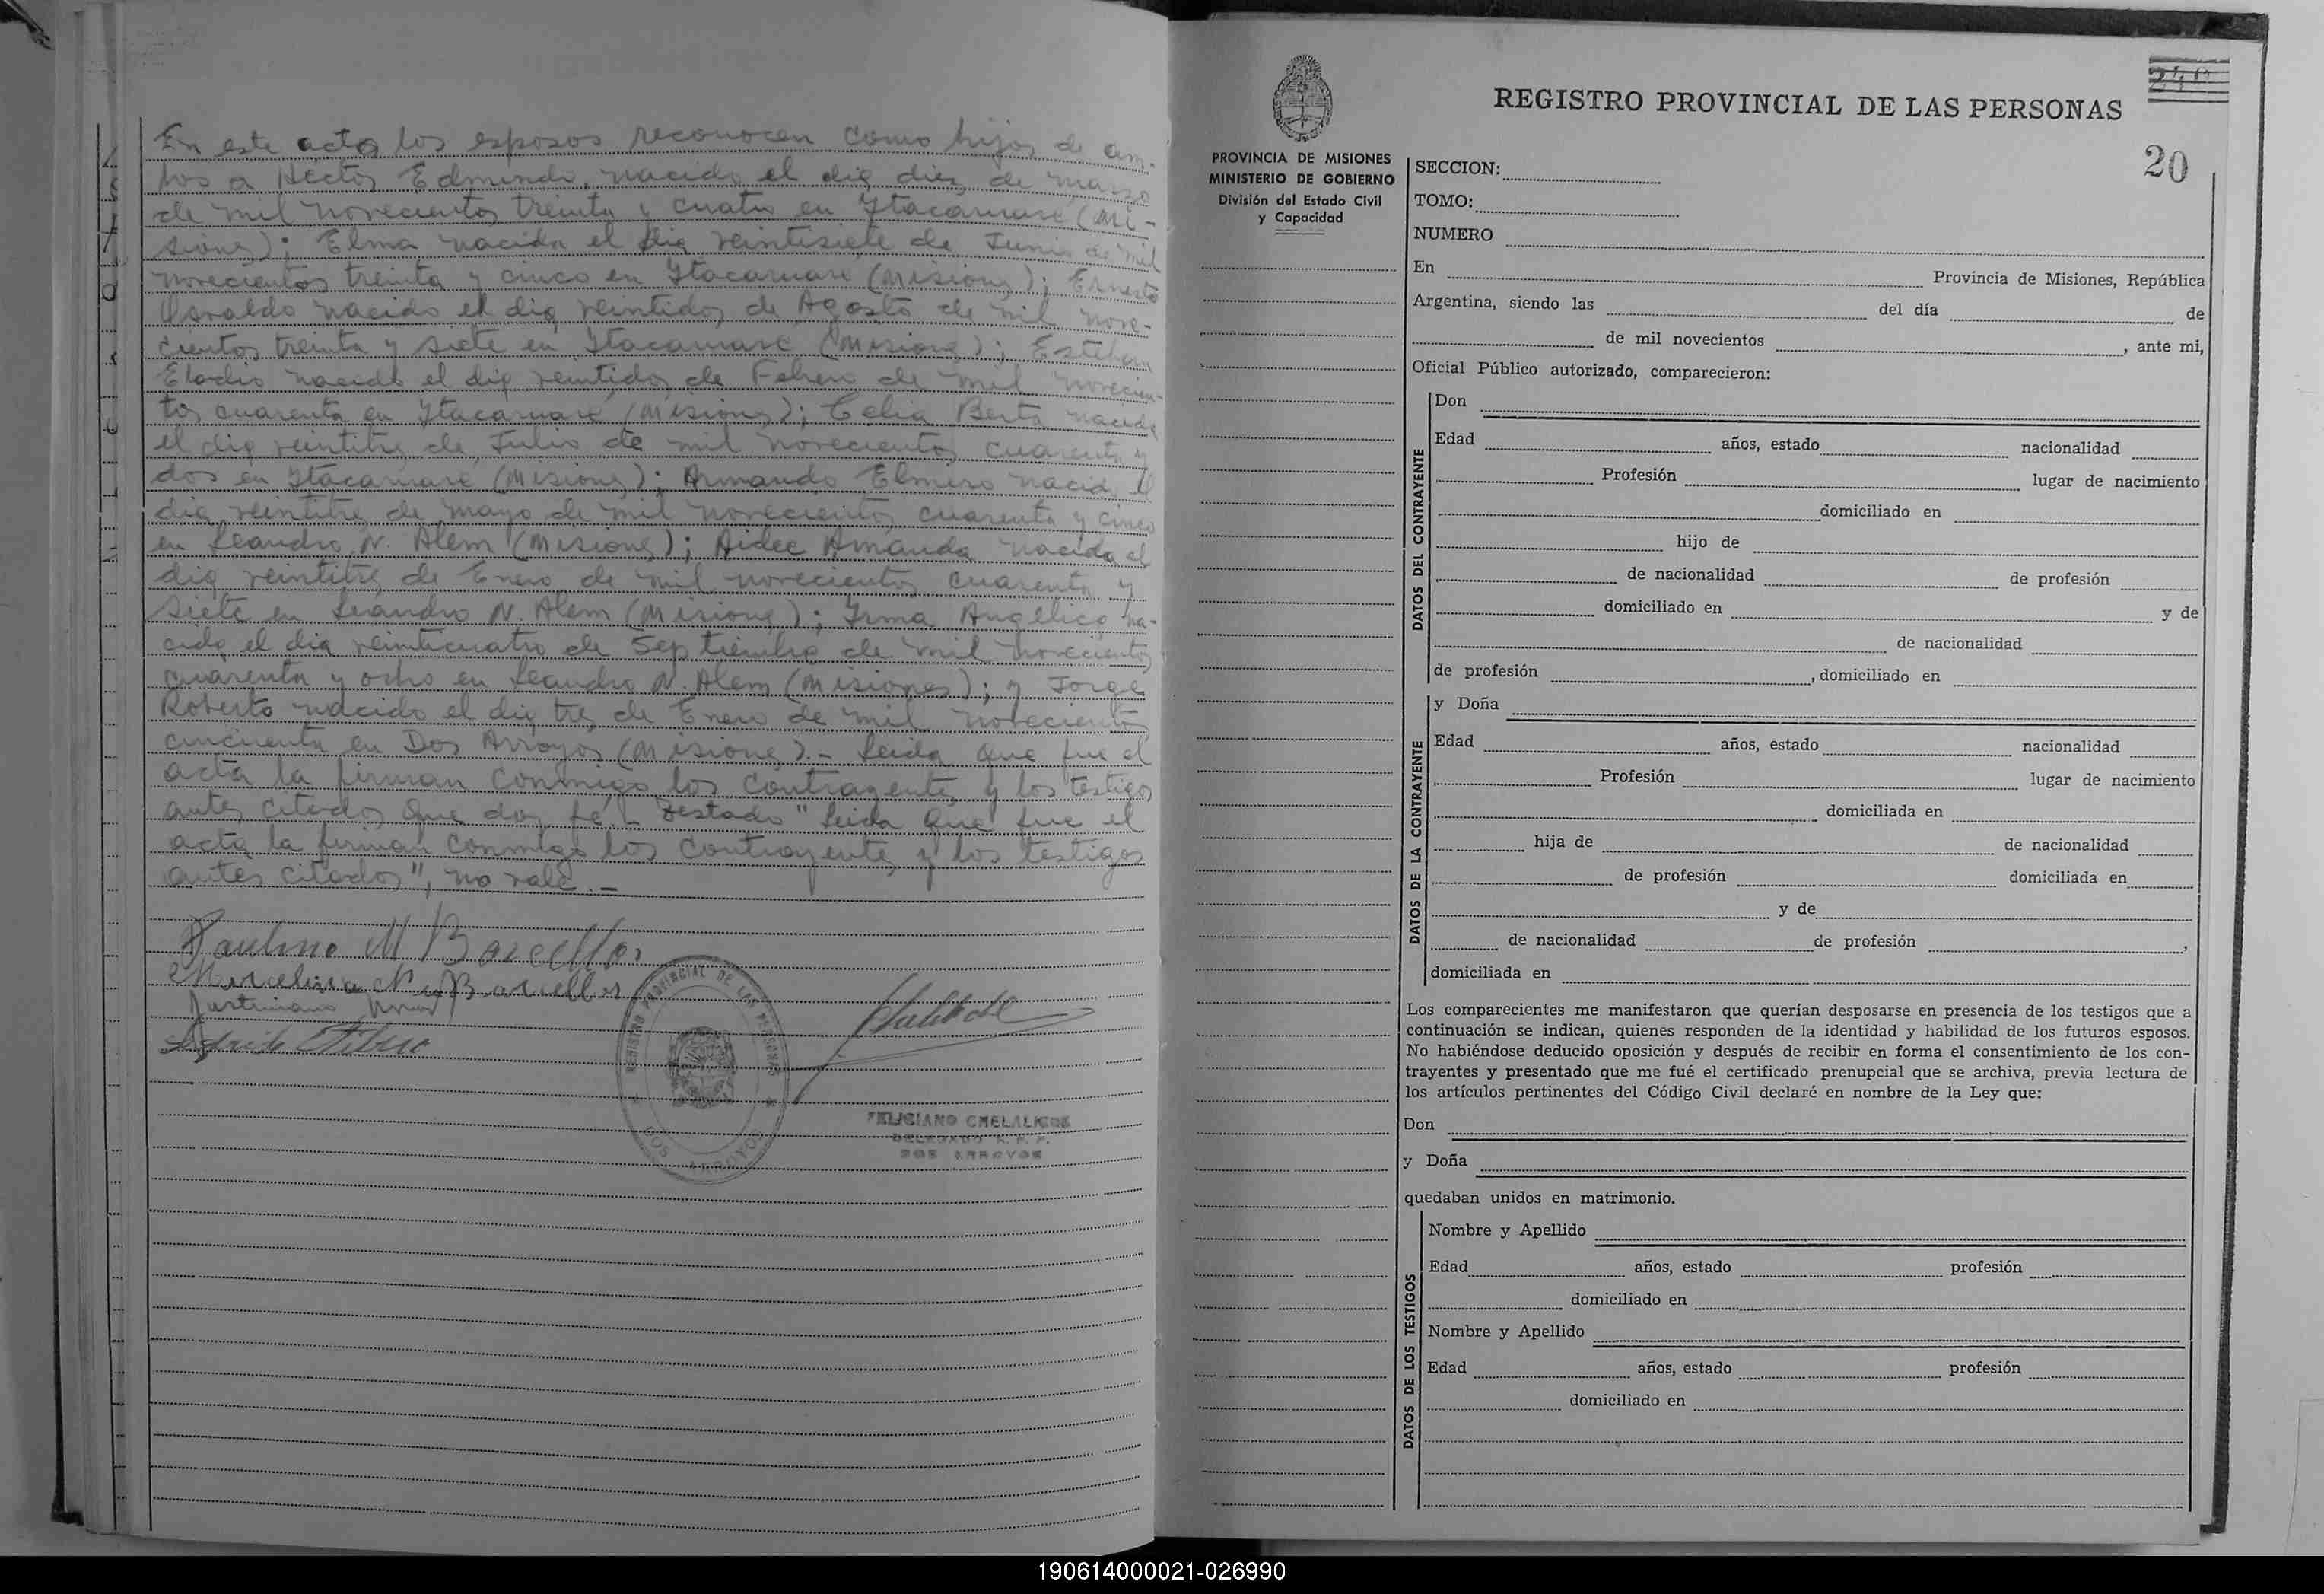 En este acto los esposos reconocen como hijos de am-
bos a Héctor Edmundo, nacido el dia diez de marzo
de mil novecientos treinta y cuatro en Itacaruare (Mi-
siones); Elma nacida el dia veintisiete de Junio de mil
novecientos treinta y cinco en Itacaruare (Misiones); Ernesto
Osvaldo nacido el dia veintidos de Agosto de mil nove-
cientos treinta y siete en Itacaruare (Misiones); Esteban
Eladio nacido el dia veintidos de Febrero de mil novecien-
tos cuarenta en Itacaruare (Misiones); Celia Berta nacida
el dia veintitres de Julio de mil novecientos cuarenta y
dos en Itacaruare (Misiones); Armando Elmiro nacido el
dia veintitres de mayo de mil novecientos cuarenta y cinco
en Leandro N. Alem (Misiones); Aidee Amanda nacida el
dia veintitres de Enero de mil novecientos cuarenta y
siete en Leandro N. Alem (Misiones); Irma Angelica na-
cida el dia veinticuatro de Septiembre de mil novecientos
cuarenta y ocho en Leandro N. Alem (Misiones); y Jorge
Roberto nacido el dia tres de Enero de mil novecientos
cincuenta en Dos Arroyos (Misiones).- Leida que fue el
acta la firman conmigo los contrayentes y los testigos
antes citados que doy fé.- Testado "Leida que fue el
acta la firman conmigo los contrayentes y los testigos
antes citados", no vale.-
Paulino M Barcellos
Marcelina N. Barcellos
Justiniano
REGISTRO PROVINCIAL DE LAS PERSONAS
DOS ARROYOS
FELICIANO CHELALICHE
DELEGADO R. P. P.
DOS ARROYOS
REGISTRO PROVINCIAL DE LAS PERSONAS
240
20
PROVINCIA DE MISIONES
MINISTERIO DE GOBIERNO
División del Estado Civil
y Capacidad
SECCION:
TOMO:
NUMERO
En Provincia de Misiones, República
Argentina, siendo las del día de
de mil novecientos , ante mi,
Oficial Público autorizado, comparecieron:
DATOS DEL CONTRAYENTE
Don
Edad años, estado nacionalidad
Profesión lugar de nacimiento
domiciliado en
hijo de
de nacionalidad de profesión
domiciliado en y de
de nacionalidad
de profesión , domiciliado en
DATOS DE LA CONTRAYENTE
y Doña
Edad años, estado nacionalidad
Profesión lugar de nacimiento
domiciliada en
hija de de nacionalidad
de profesión domiciliada en
y de
de nacionalidad de profesión ,
domiciliada en
Los comparecientes me manifestaron que querían desposarse en presencia de los testigos que a
continuación se indican, quienes responden de la identidad y habilidad de los futuros esposos.
No habiéndose deducido oposición y después de recibir en forma el consentimiento de los con-
trayentes y presentado que me fué el certificado prenupcial que se archiva, previa lectura de
los artículos pertinentes del Código Civil declaré en nombre de la Ley que:
Don
y Doña
quedaban unidos en matrimonio.
DATOS DE LOS TESTIGOS
Nombre y Apellido
Edad años, estado profesión
domiciliado en
Nombre y Apellido
Edad años, estado profesión
domiciliado en
190614000021-026990